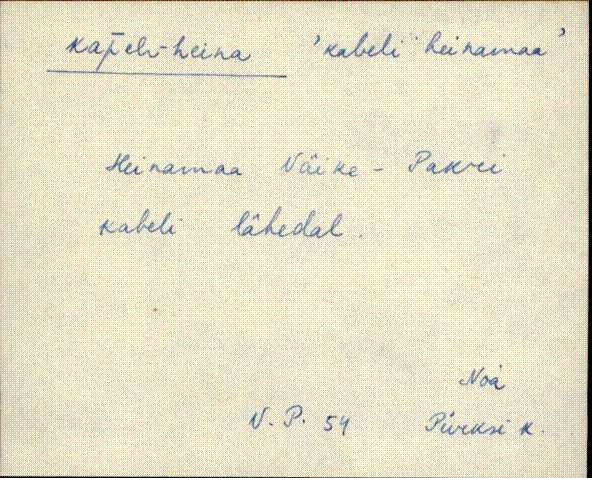 kapelv-heina 'kabeli heinamaa'
Heinamaa Väike-Pakri
kabeli lähedal.
Noa
V. P. 54 Pürksi k.